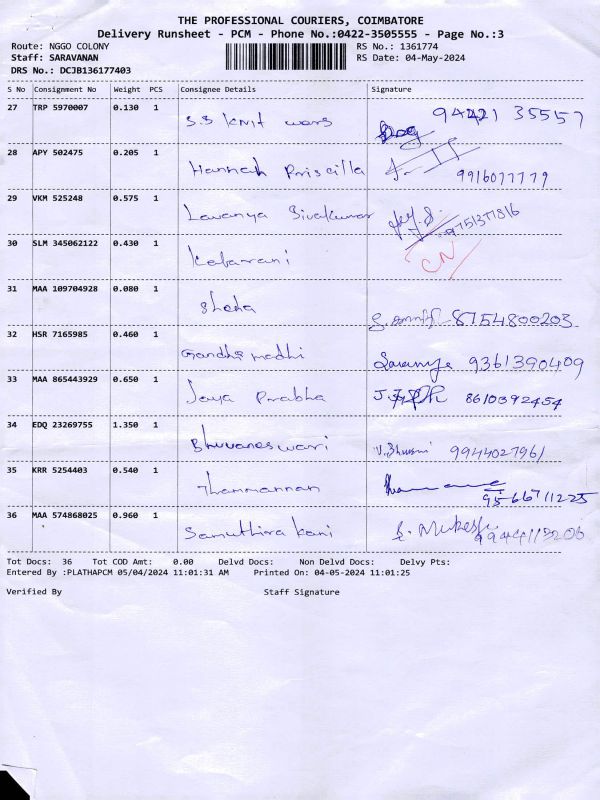 THE PROFESSIONAL COURIERS, COIMBATORE
Delivery Runsheet - PCM - Phone No.:0422-3505555 - Page No.:3
Route: NGGO COLONY RS No.: 1361774
Staff: SARAVANAN RS Date: 04-May-2024
DRS No.: DCJB136177403
S No Consignment No Weight PCS Consignee Details Signature
27 TRP 5970007 0.130 1 S.S Knit wars 94421 35557
28 APY 502475 0.205 1 Hannah Priscilla 9916077779
29 VKM 525248 0.575 1 Lavanya Sivakumar 9751377816
30 SLM 345062122 0.430 1 CN
31 MAA 109704928 0.080 1 Sheha 8754800203
32 HSR 7165985 0.460 1 Gandhi madhi Saranya 9361390409
33 MAA 865443929 0.650 1 Jaya Prabha 8610392454
34 EDQ 23269755 1.350 1 Bhuvaneswari 9944027961
35 KRR 5254403 0.540 1 Thanmannan 95667 11225
36 MAA 574868025 0.960 1 Samuthira kani Mukesh 9944113206
Tot Docs: 36 Tot COD Amt: 0.00 Delvd Docs: Non Delvd Docs: Delvy Pts:
Entered By :PLATHAPCM 05/04/2024 11:01:31 AM Printed On: 04-05-2024 11:01:25
Verified By Staff Signature